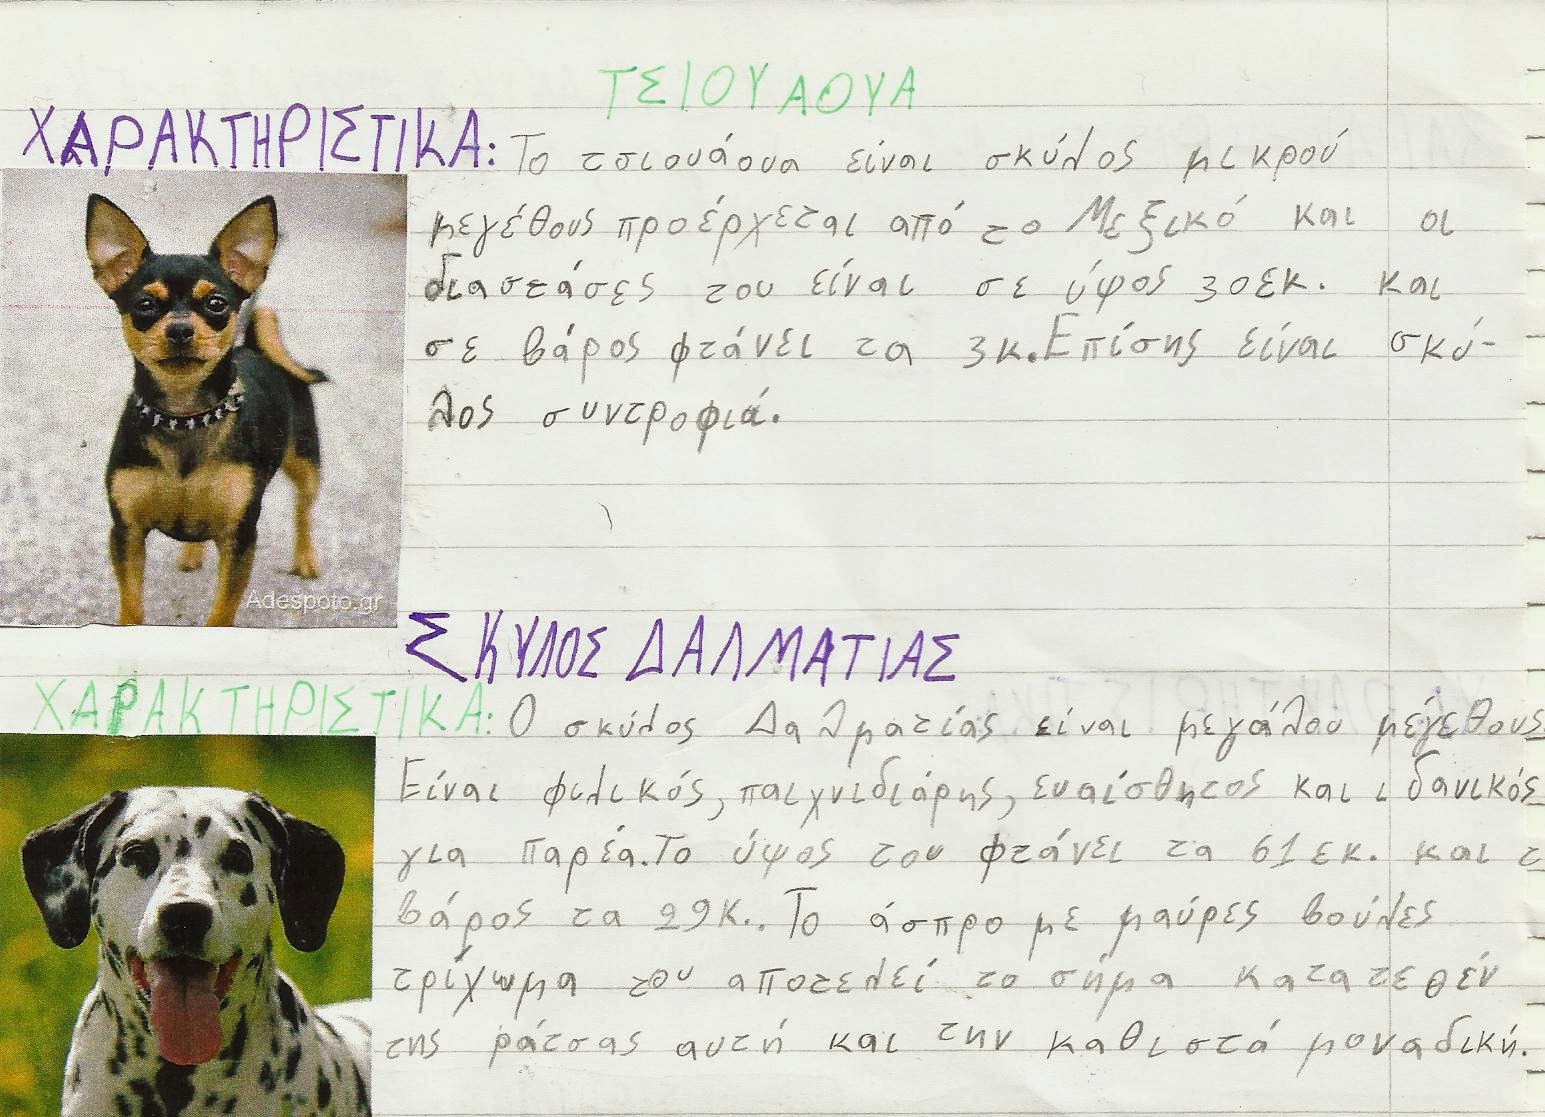 ΤΣΙΟΥΑΟΥΑ
ΧΑΡΑΚΤΗΡΙΣΤΙΚΑ: Το τσιουάουα είναι σκύλος μικρού
μεγέθους προέρχεται από το Μεξικό και οι
διαστάσες του είναι σε ύψος 30εκ. και
σε βάρος φτάνει τα 3κ. Επίσης είναι σκύ-
λος συντροφιά.
Adespoto.gr
ΣΚΥΛΟΣ ΔΑΛΜΑΤΙΑΣ
ΧΑΡΑΚΤΗΡΙΣΤΙΚΑ: Ο σκύλος Δαλματίας είναι μεγάλου μέγεθους
Είναι φιλικός, παιχνιδιάρης, ευαίσθητος και ιδανικός
για παρέα. Το ύψος του φτάνει τα 61εκ. και τ
βάρος τα 29κ.. Το άσπρο με μαύρες βούλες
τρίχωμα του αποτελεί το σήμα κατατεθέν
της ράτσας αυτή και την καθιστά μοναδική.